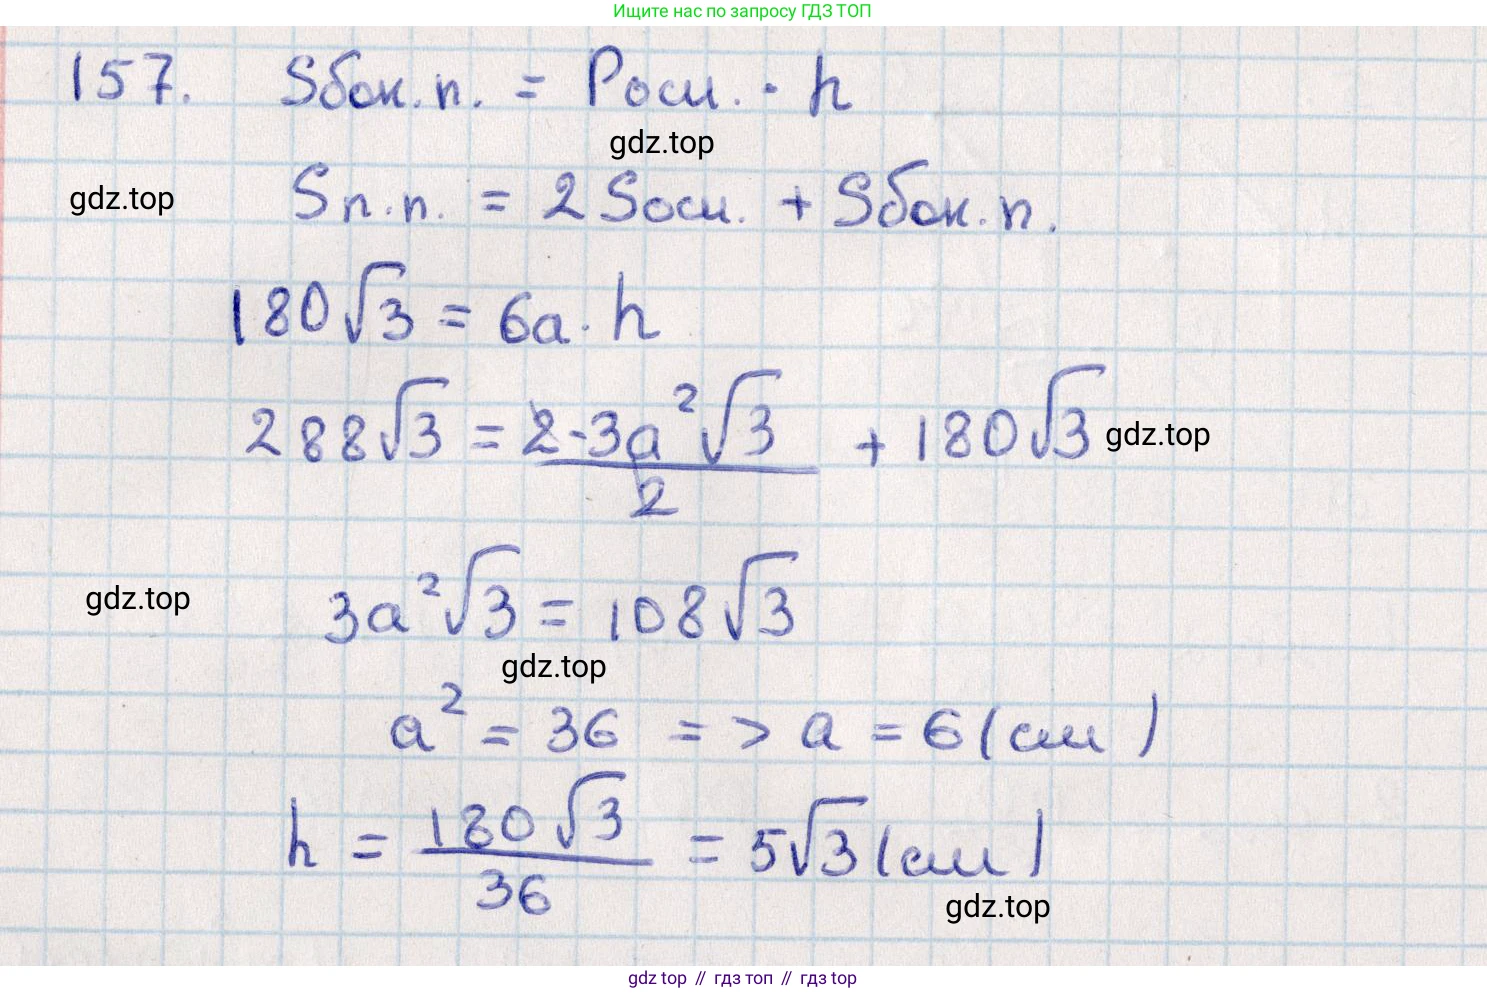 Ищите нас по запросу ГДЗ ТОП
157. Sбок.п. = Pосн. · h
gdz.top
gdz.top
Sп.п. = 2Sосн. + Sбок.п.
180√3 = 6a · h
288√3 = 2·3a²√3/2 + 180√3
gdz.top
gdz.top
3a²√3 = 108√3
gdz.top
a² = 36 => a = 6 (см)
h = 180√3/36 = 5√3 (см)
gdz.top
gdz top // гдз топ // gdz top